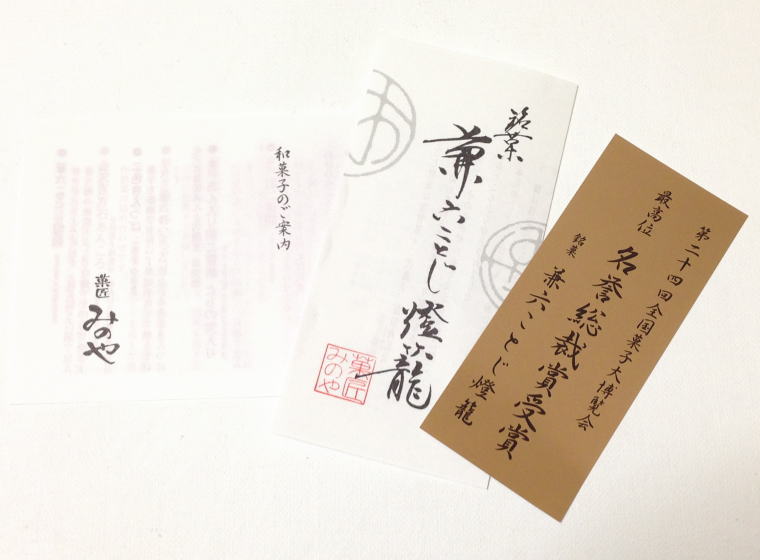 和菓子のご案内
菓匠
みのや
銘菓
兼六ことじ燈籠
菓匠
みのや
第二十四回全国菓子大博覧会
最高位
名誉総裁賞受賞
銘菓
兼六ことじ燈籠